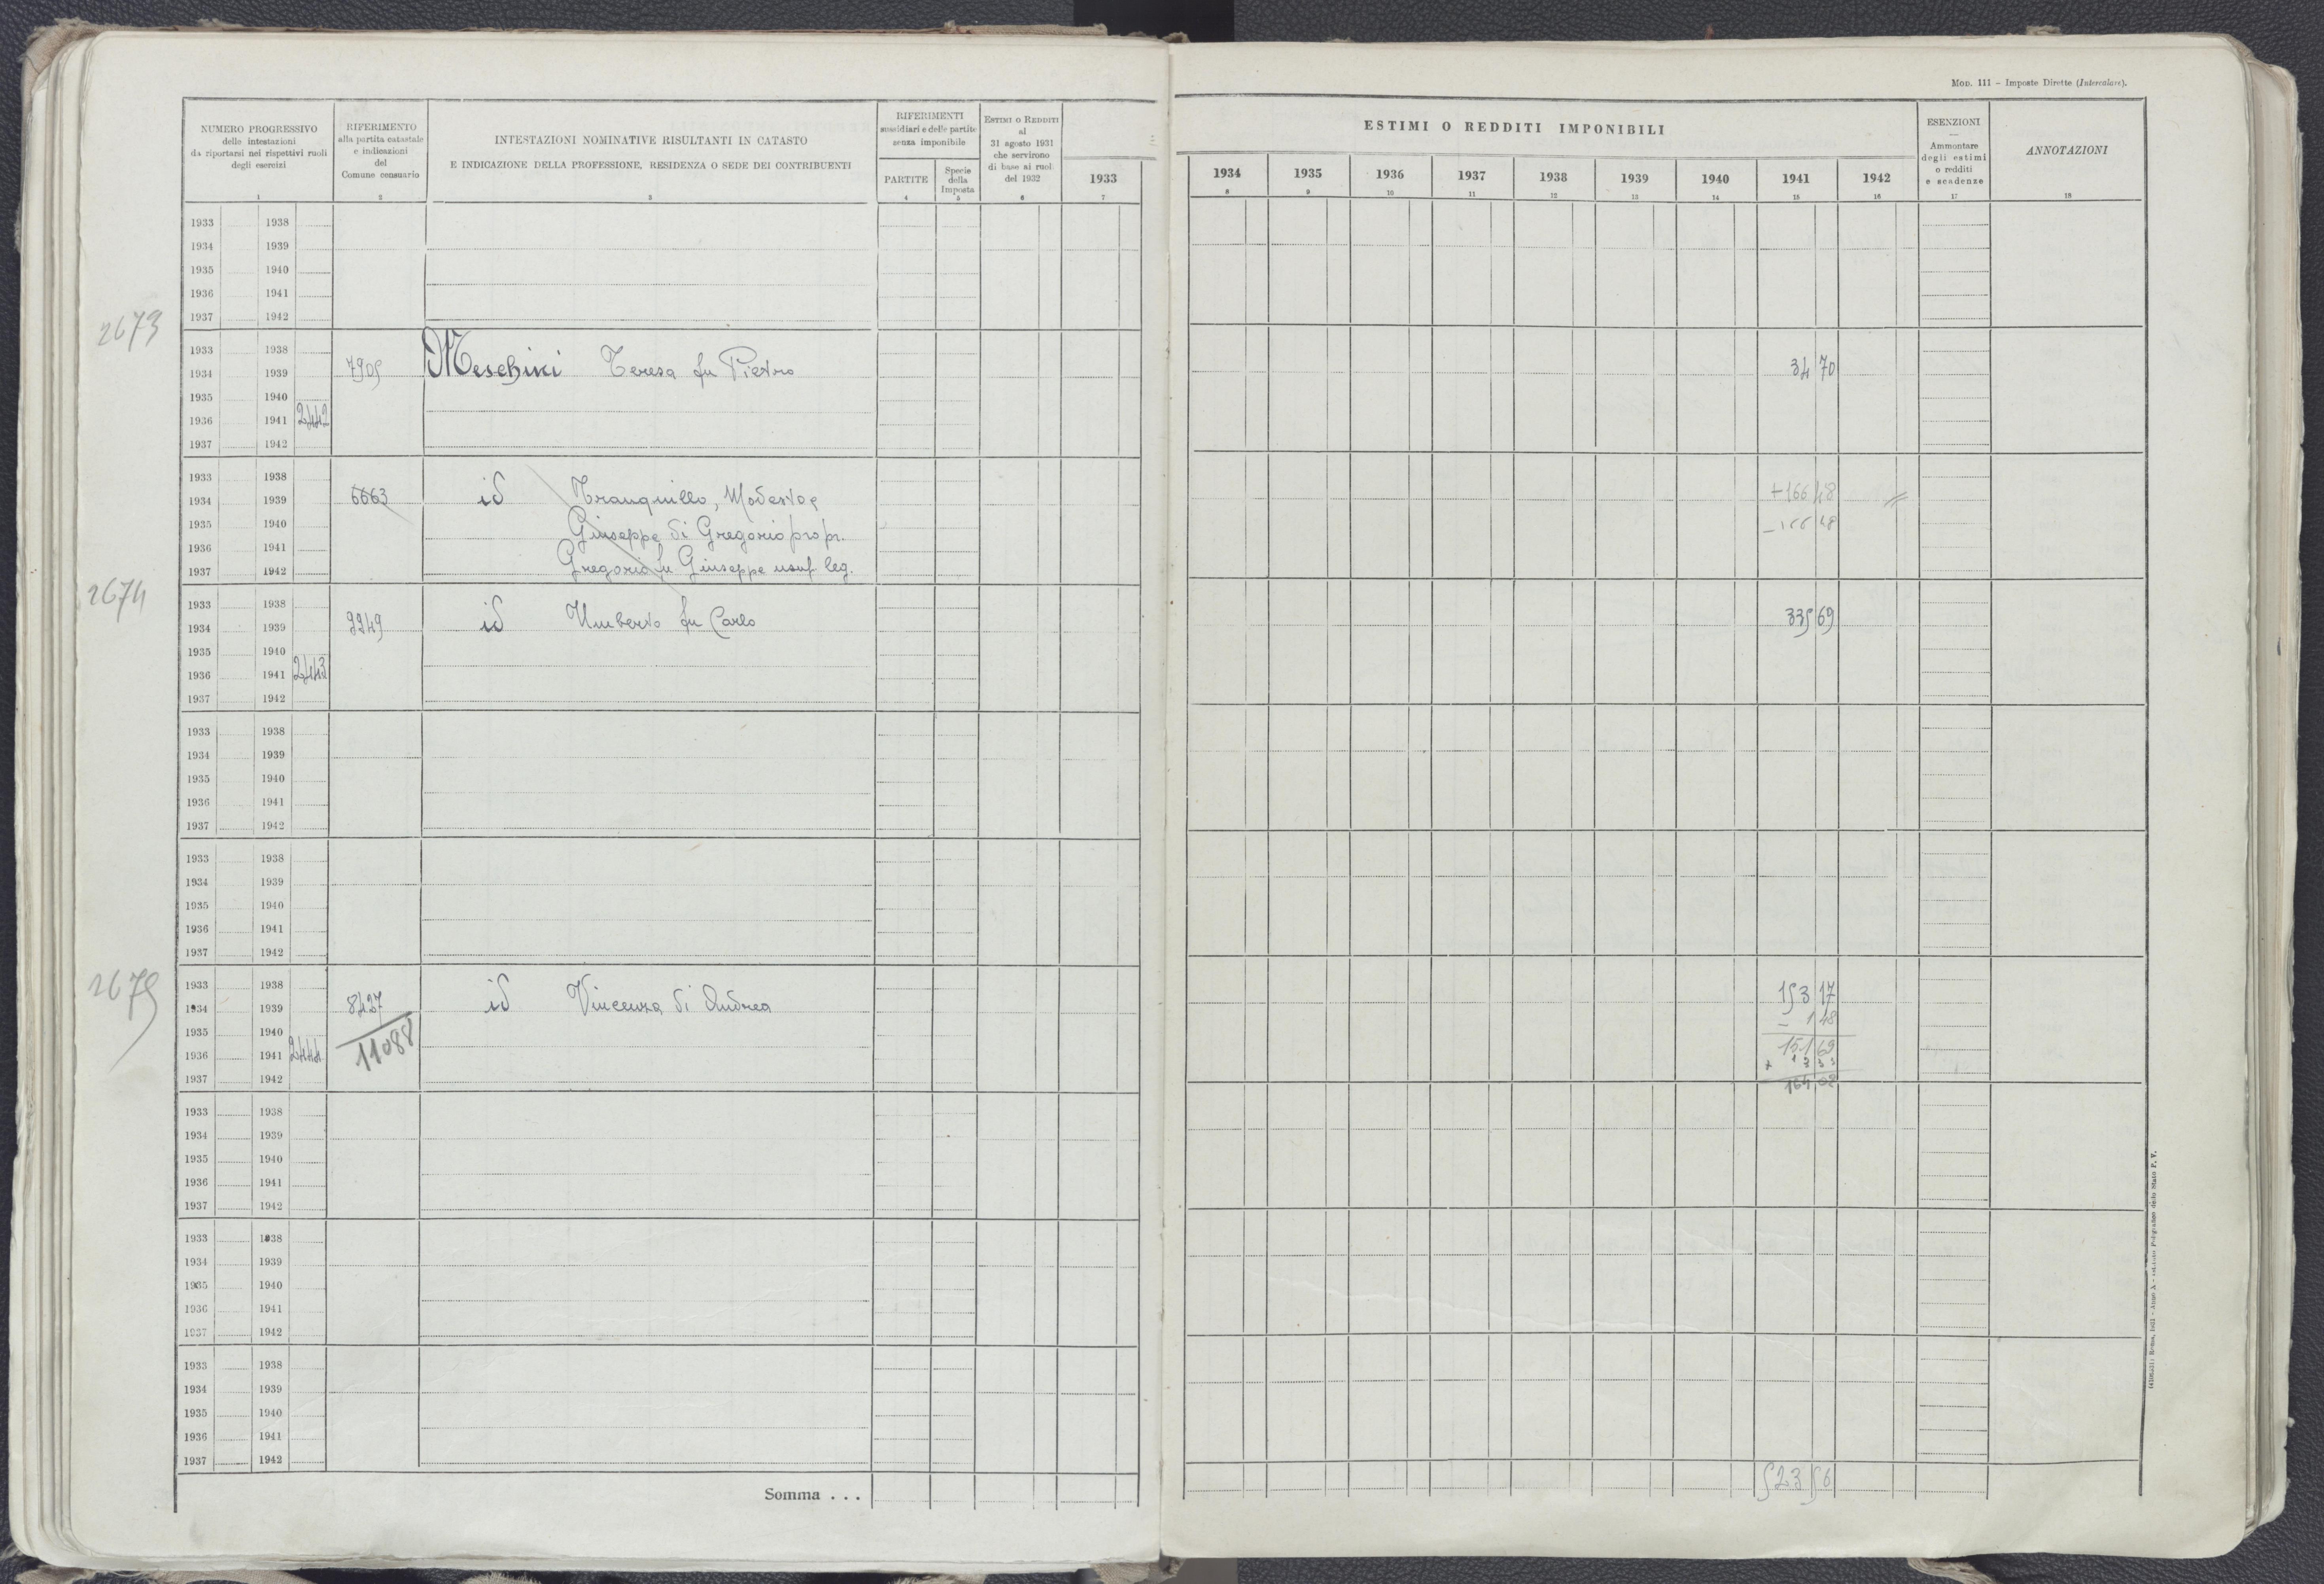 Mod. 111 - Imposte Dirette (Intercalare).
NUMERO PROGRESSIVO
delle intestazioni
da riportarsi nei rispettivi ruoli
degli esercizi
1
RIFERIMENTO
alla partita catastale
e indicazioni
del
Comune censuario
2
INTESTAZIONI NOMINATIVE RISULTANTI IN CATASTO
E INDICAZIONE DELLA PROFESSIONE, RESIDENZA O SEDE DEI CONTRIBUENTI
3
RIFERIMENTI
sussidiari e delle partite
senza imponibile
PARTITE
4
Specie
della
Imposta
5
ESTIMI O REDDITI
al
31 agosto 1931
che servirono
di base ai ruoli
del 1932
6
1933
7
ESTIMI O REDDITI IMPONIBILI
1934 1935 1936 1937 1938 1939 1940 1941 1942
8 9 10 11 12 13 14 15 16
ESENZIONI
Ammontare
degli estimi
o redditi
e scadenze
17
ANNOTAZIONI
18
1933 1938
1934 1939
1935 1940
1936 1941
1937 1942
2673
1933 1938
1934 1939 7905 Meschini Teresa fu Pietro 34 70
1935 1940
1936 1941 2442
1937 1942
1933 1938
1934 1939 6663 id Tranquillo, Modesto e +166 48
1935 1940 Giuseppe di Gregorio propr. -166 48
1936 1941
1937 1942 Gregorio fu Giuseppe usuf. leg.
2674
1933 1938
1934 1939 9249 id Umberto fu Carlo 335 69
1935 1940
1936 1941 2443
1937 1942
1933 1938
1934 1939
1935 1940
1936 1941
1937 1942
1933 1938
1934 1939
1935 1940
1936 1941
1937 1942
2675
1933 1938 153 17
1934 1939 8427 id Vincenza di Andrea
1935 1940 - 1 48
1936 1941 2444 11088 151 69
1937 1942
164 02
1933 1938
1934 1939
1935 1940
1936 1941
1937 1942
1933 1938
1934 1939
1935 1940
1936 1941
1937 1942
1933 1938
1934 1939
1935 1940
1936 1941
1937 1942
Somma . . . 523 56